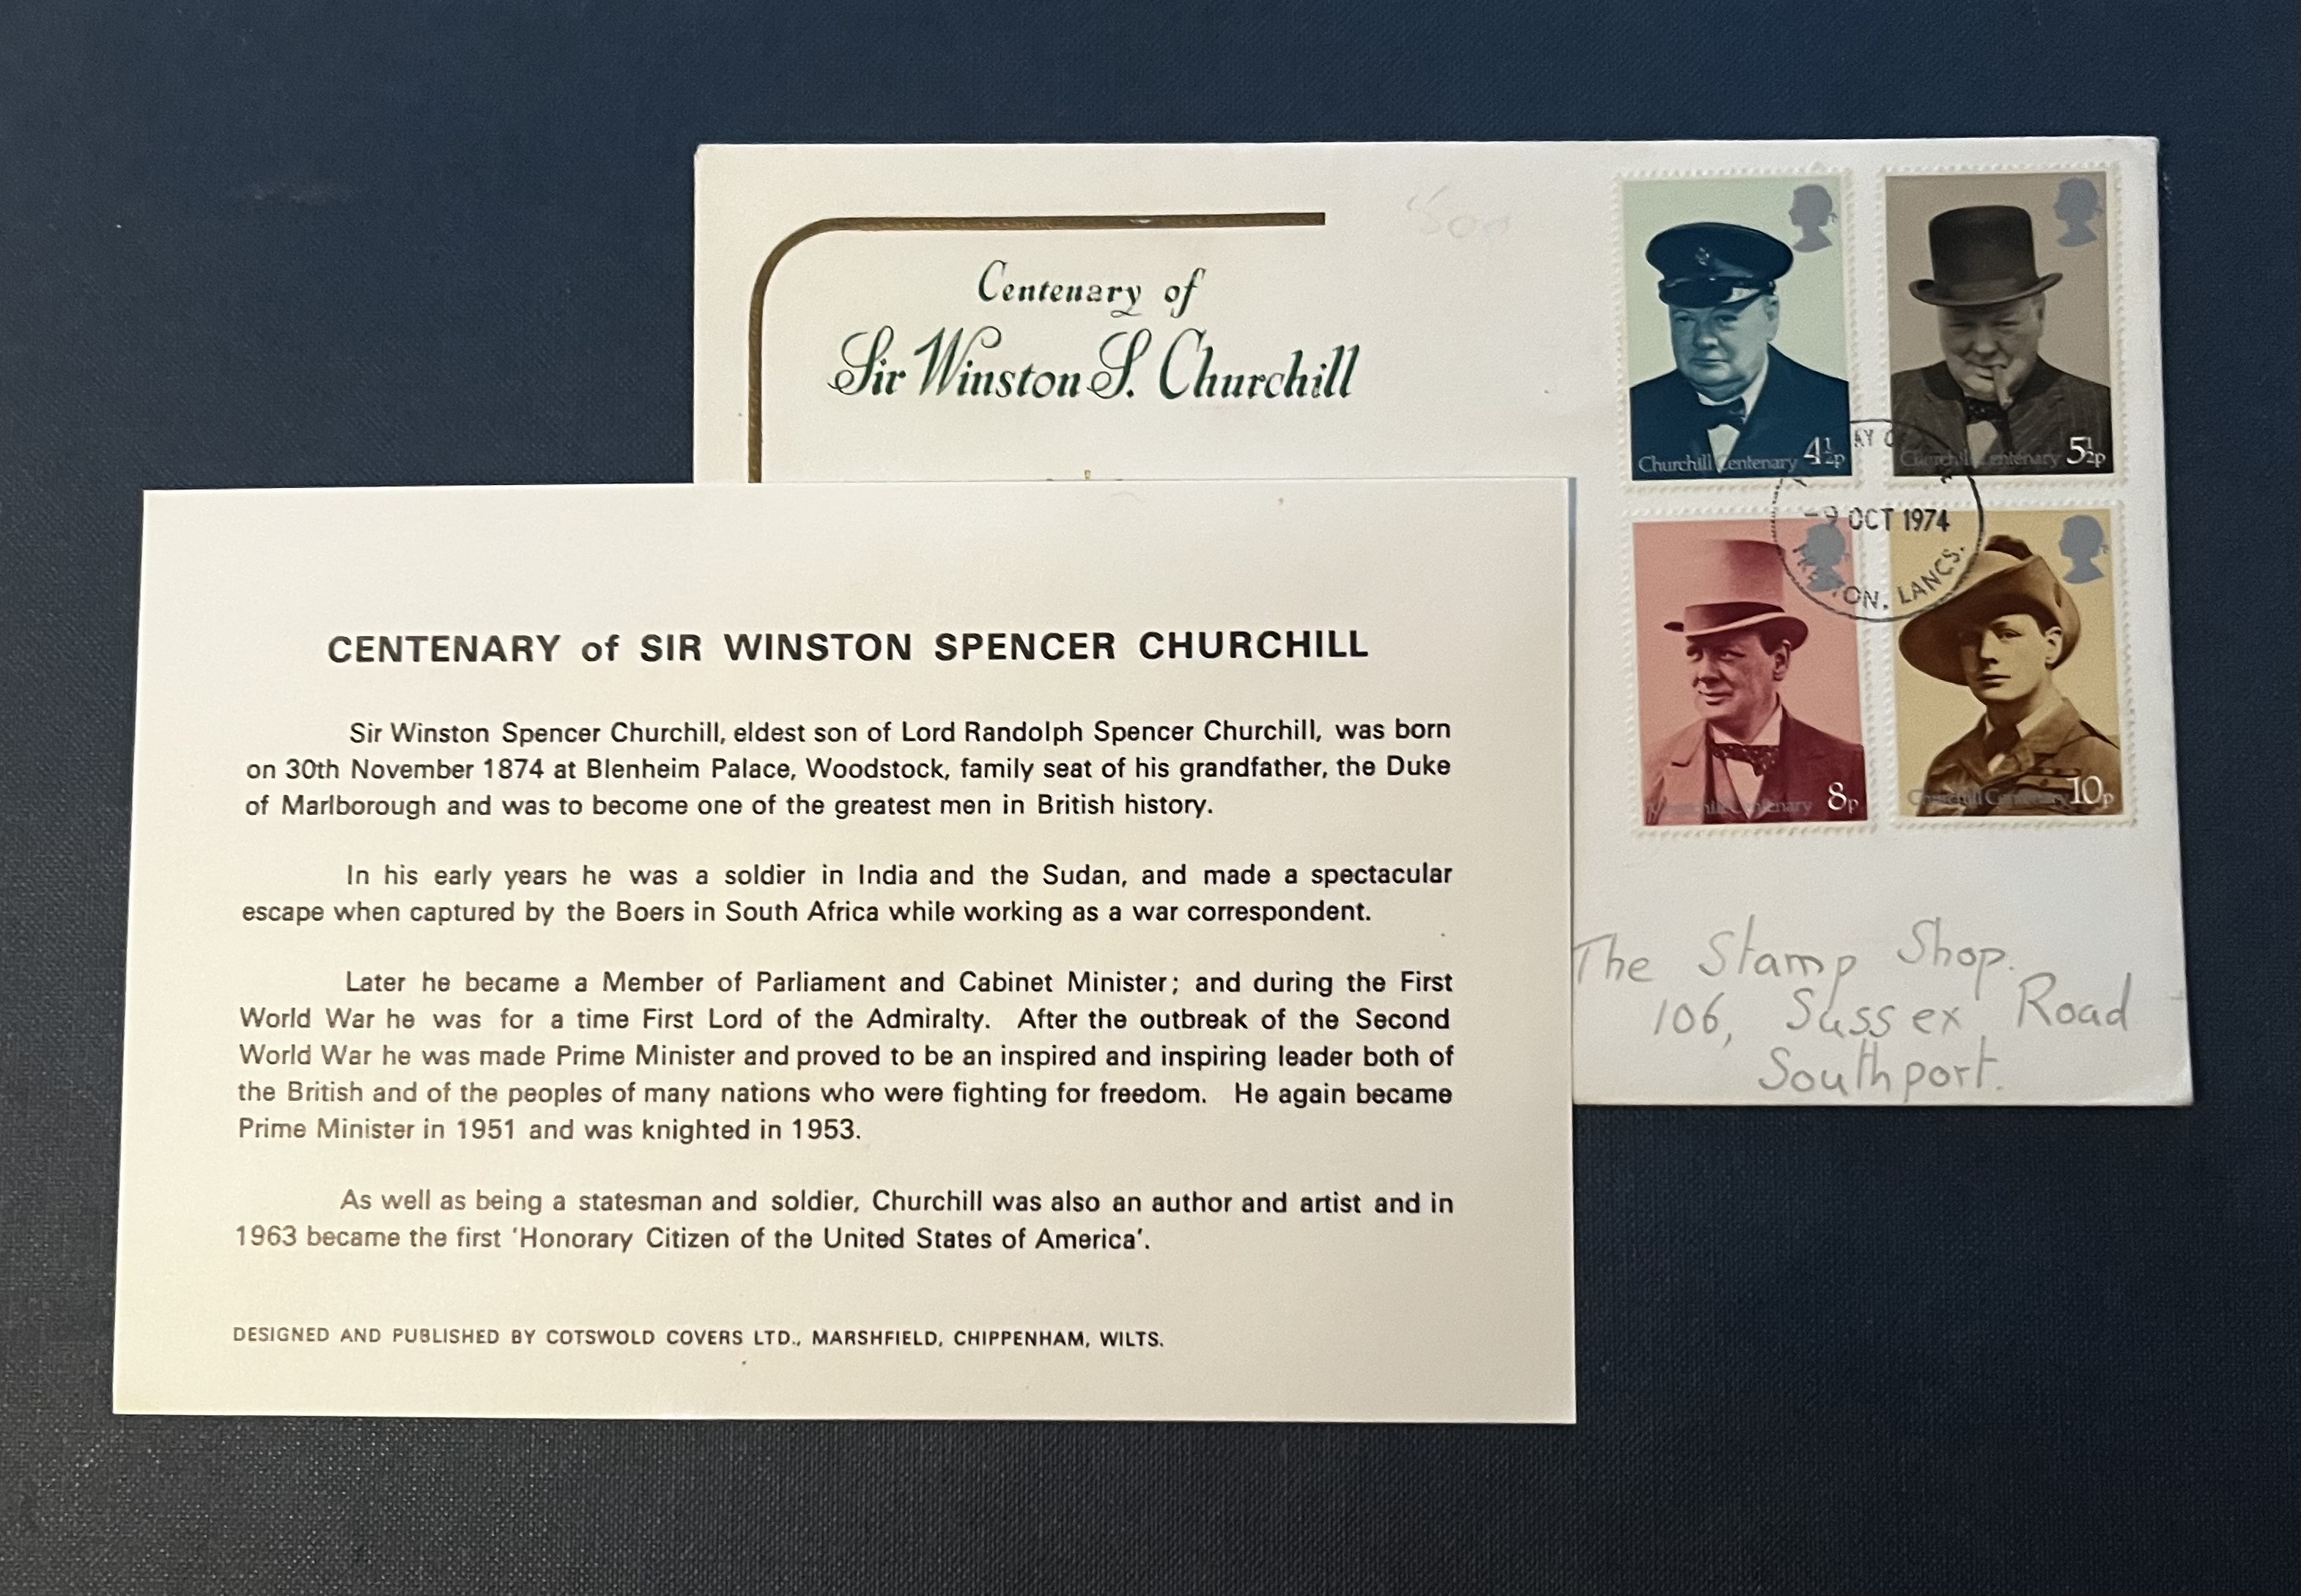 Centenary of
Sir Winston S. Churchill
Churchill Centenary 4½p
Churchill Centenary 5½p
-9 OCT 1974
LANCS.
Churchill Centenary 8p
Churchill Centenary 10p
The Stamp Shop.
106, Sussex Road
Southport.
CENTENARY of SIR WINSTON SPENCER CHURCHILL
Sir Winston Spencer Churchill, eldest son of Lord Randolph Spencer Churchill, was born
on 30th November 1874 at Blenheim Palace, Woodstock, family seat of his grandfather, the Duke
of Marlborough and was to become one of the greatest men in British history.
In his early years he was a soldier in India and the Sudan, and made a spectacular
escape when captured by the Boers in South Africa while working as a war correspondent.
Later he became a Member of Parliament and Cabinet Minister; and during the First
World War he was for a time First Lord of the Admiralty. After the outbreak of the Second
World War he was made Prime Minister and proved to be an inspired and inspiring leader both of
the British and of the peoples of many nations who were fighting for freedom. He again became
Prime Minister in 1951 and was knighted in 1953.
As well as being a statesman and soldier, Churchill was also an author and artist and in
1963 became the first 'Honorary Citizen of the United States of America'.
DESIGNED AND PUBLISHED BY COTSWOLD COVERS LTD., MARSHFIELD, CHIPPENHAM, WILTS.